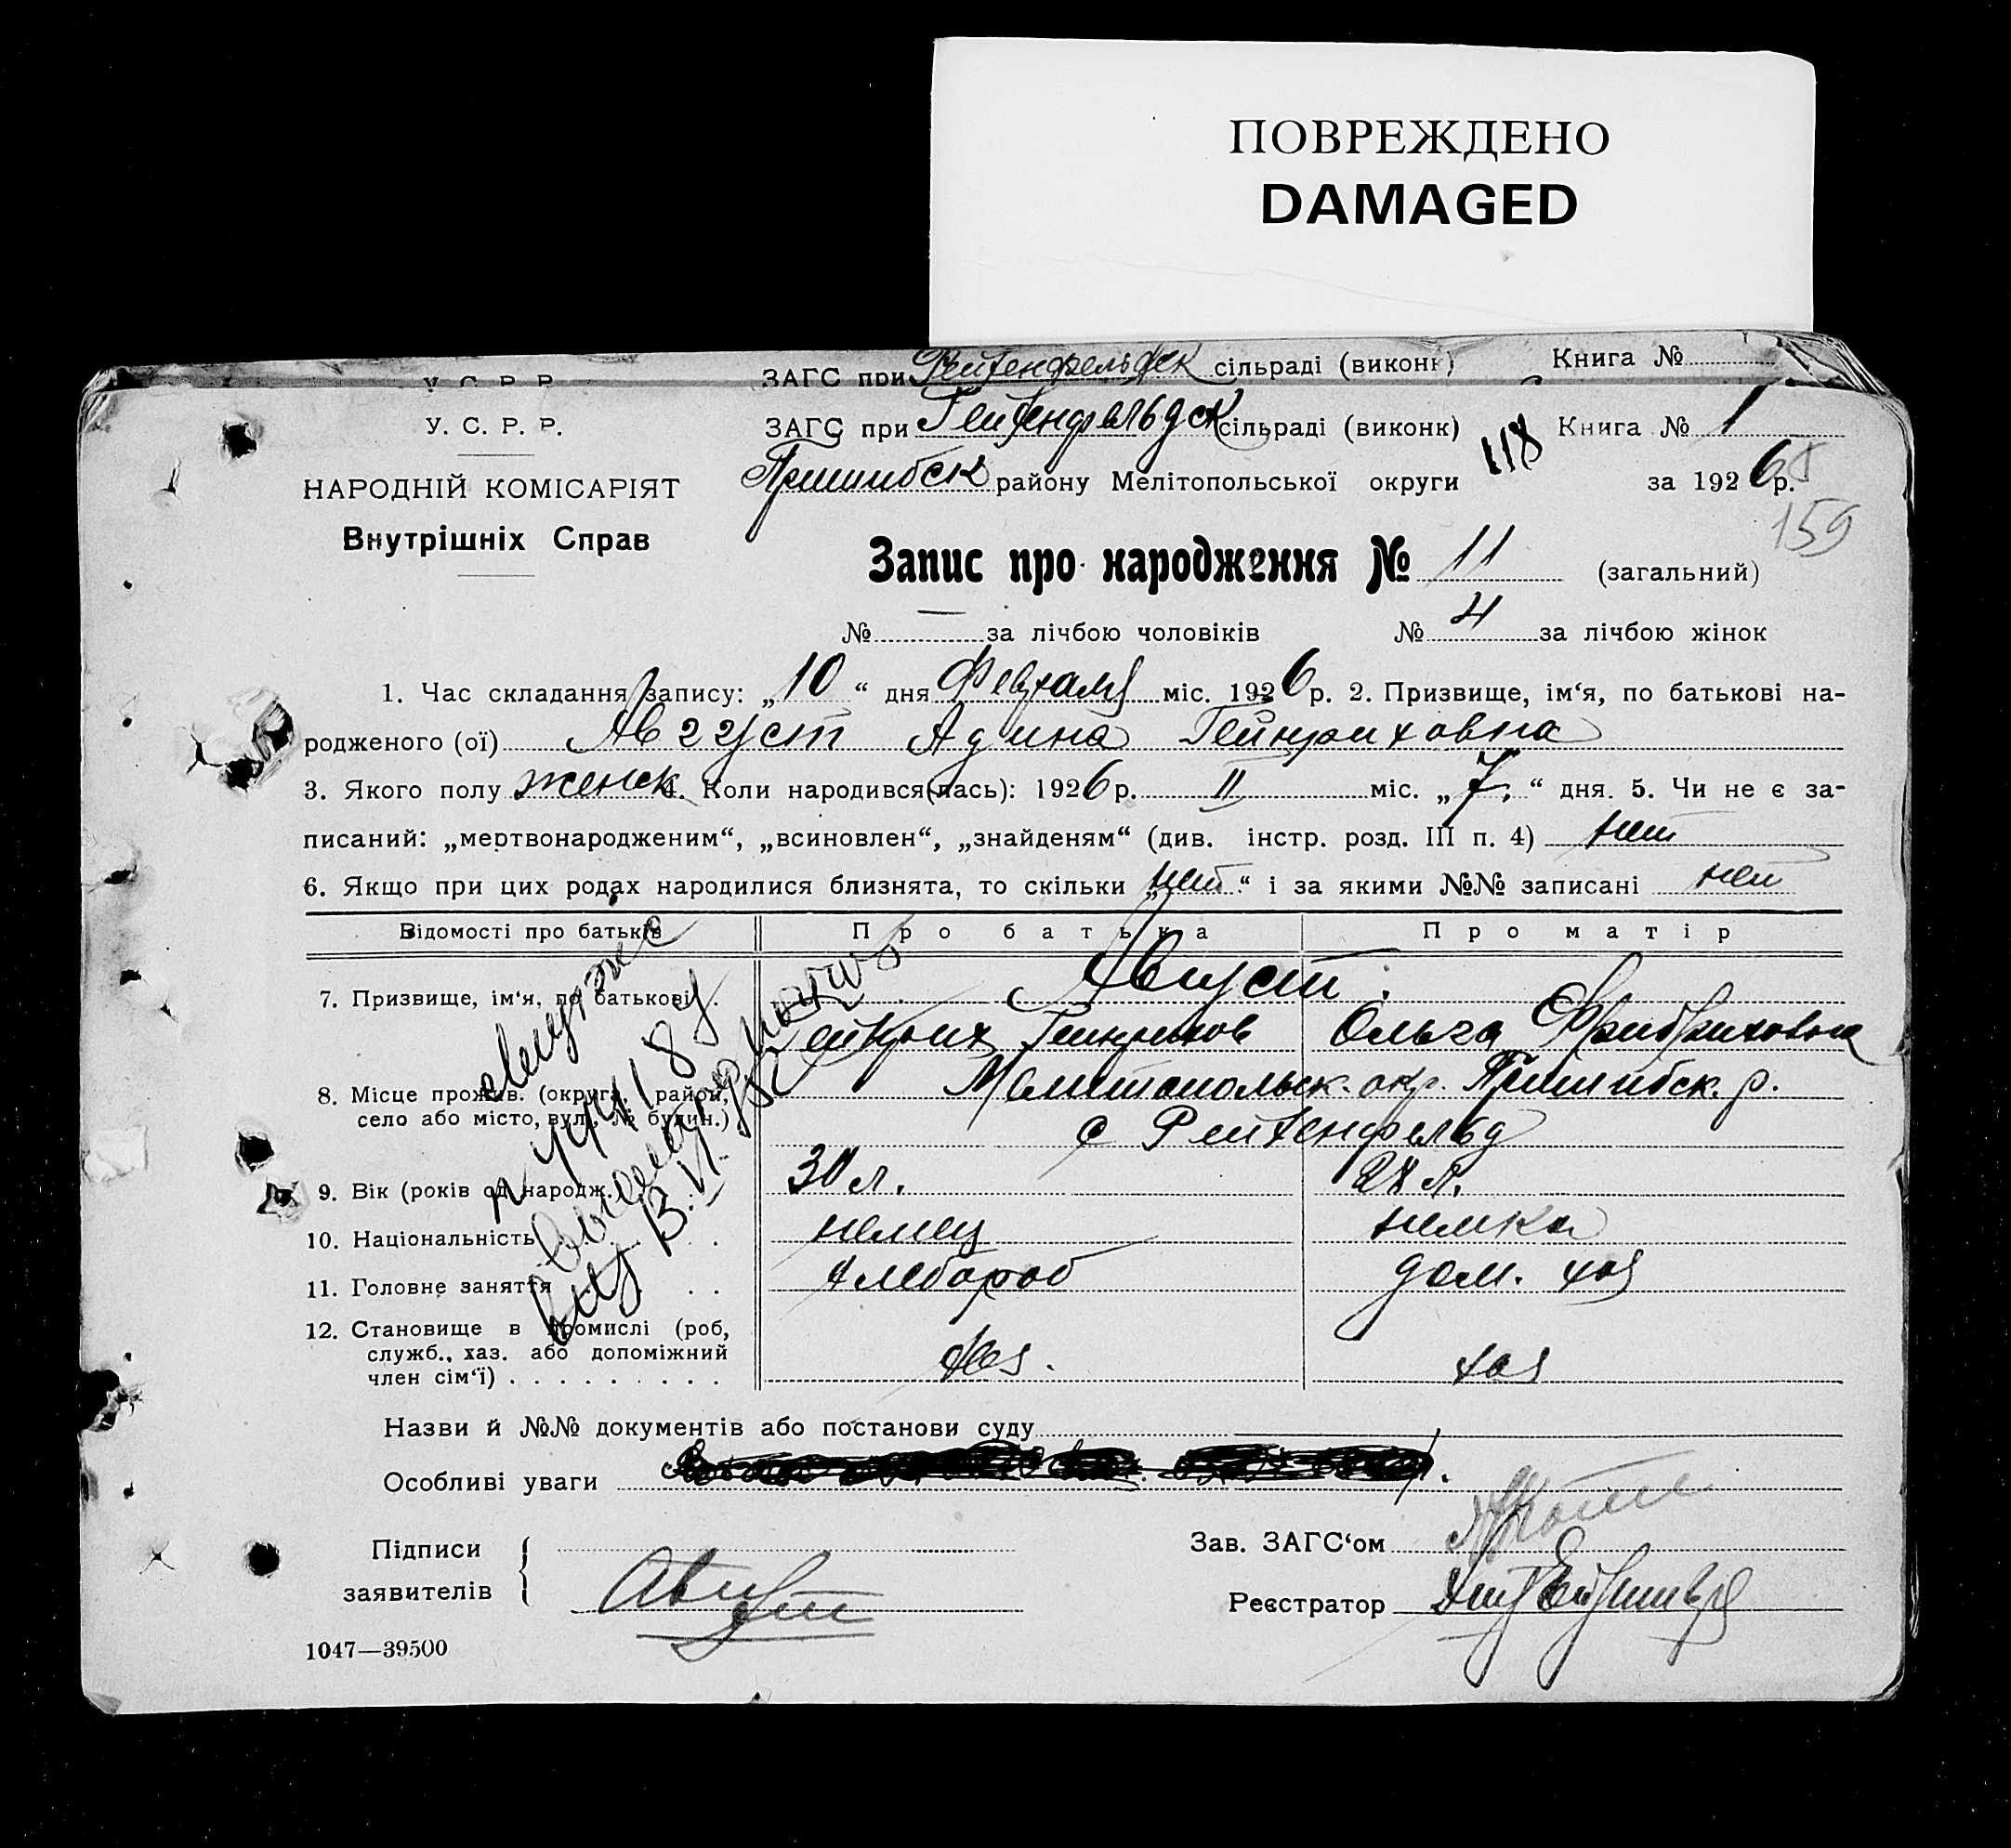 ПОВРЕЖДЕНО
DAMAGED
ЗАГС при Рейхенфельдск сільраді (виконк) Книга №
У. С. Р. Р.
У. С. Р. Р. ЗАГС при Рейхенфельдск сільраді (виконк) 118 Книга № 1
НАРОДНІЙ КОМІСАРІЯТ Пришибск району Мелітопольської округи за 1926 р.
Внутрішніх Справ 159
Запис про народження № 11 (загальний)
№ — за лічбою чоловіків № 4 за лічбою жінок
1. Час складання запису: „10“ дня Февраля міс. 1926 р. 2. Призвище, ім‘я, по батькові на-
родженого (ої) Август Адина Гейнриховна
3. Якого полу женск 4. Коли народився(лась): 1926 р. II міс. „7.“ дня. 5. Чи не є за-
писаний: „мертвонародженим“, „всиновлен“, „знайденям“ (див. інстр. розд. III п. 4) нет
6. Якщо при цих родах народилися близнята, то скільки „нет“ і за якими №№ записані нет
Відомості про батьків Про батька Про матір
7. Призвище, ім‘я, по батькові Август.
Гейнрих Гейнрихов Ольга Фридриховна
8. Місце прожив. (округа, район, Мелитопольск. окр. Пришибск. р.
село або місто, вул., № будин.) с Рейхенфельд
9. Вік (років од народж.) 30 л. 28 л.
10. Національність немец немка
11. Головне заняття хлебороб дом. хоз
12. Становище в промислі (роб,
служб., хаз. або допоміжний хоз. хоз
член сім‘ї)
Назви й №№ документів або постанови суду
Особливі уваги
Підписи Зав. ЗАГС‘ом
заявителів Август Реєстратор
1047—39500